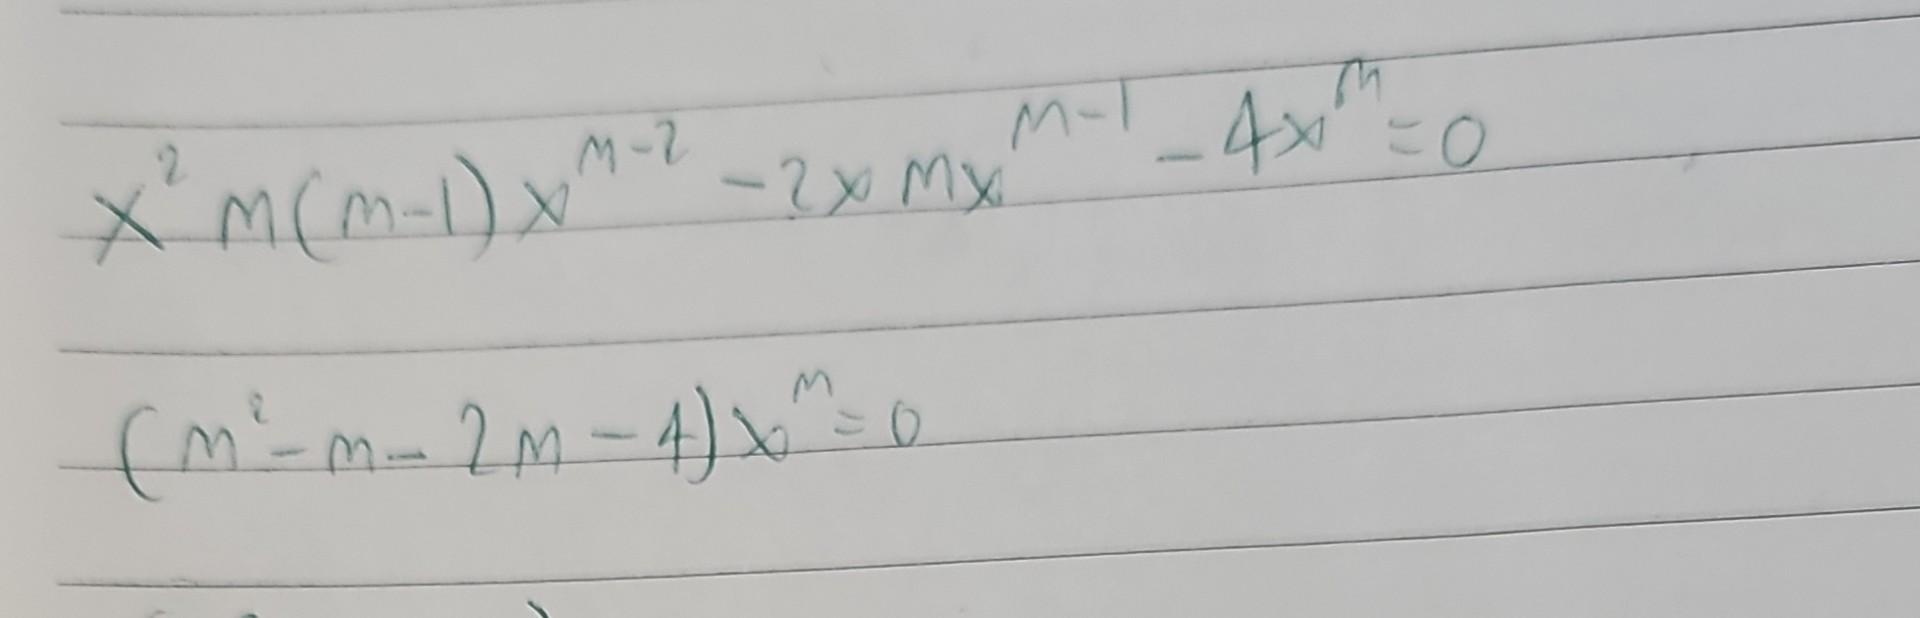 x² m(m-1) x^{m-2} - 2x mx^{m-1} - 4x^m = 0
(m² - m - 2m - 4) x^m = 0